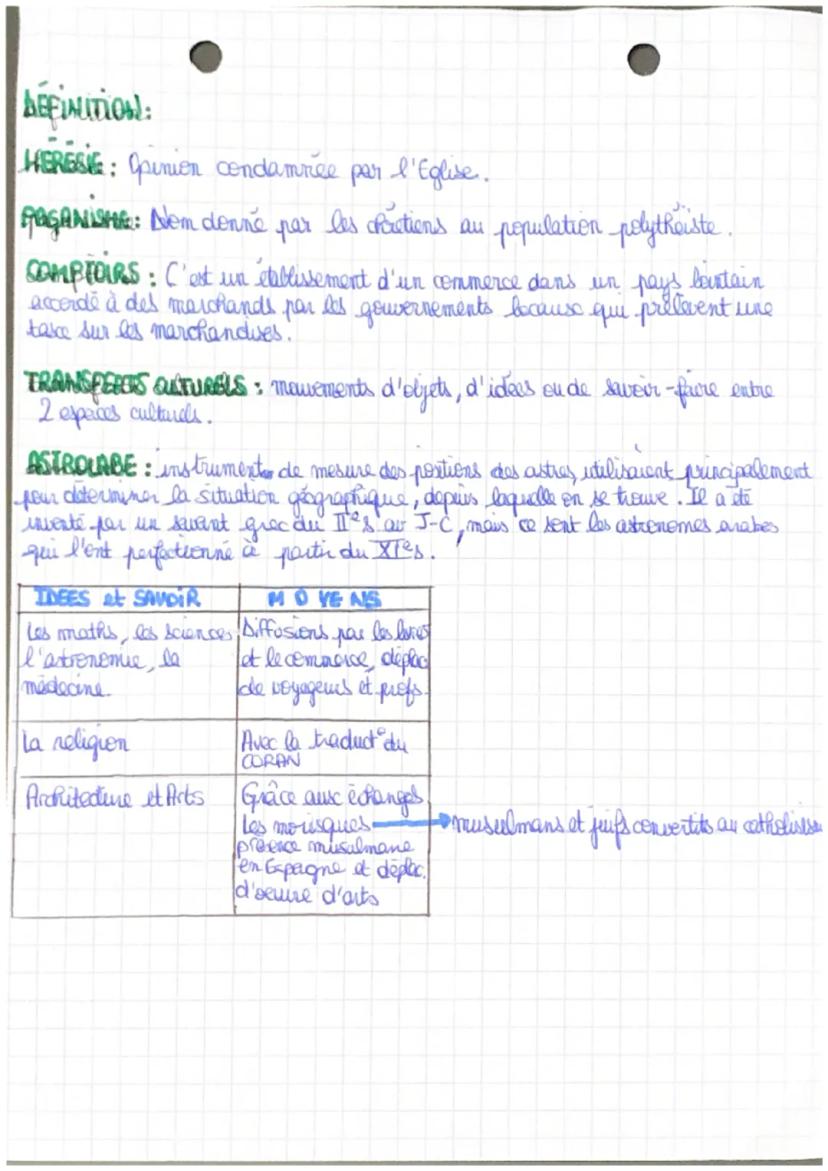 DÉFINITION:
HÉRÉSIE : Opinion condamnée par l'Eglise.
PAGANISME: Nom donné par les chrétiens au population polythéiste.
COMPTOIRS : C'est un établissement d'un commerce dans un pays lointain
accordé à des marchands par les gouvernements locaux qui prélèvent une
taxe sur les marchandises.
TRANSFERTS CULTURELS : mouvements d'objets, d'idées ou de savoir-faire entre
2 espaces culturels.
ASTROLABE : instrument de mesure des positions des astres, utilisaient principalement
pour déterminer la situation géographique, depuis laquelle on se trouve. Il a été
inventé par un savant grec du IIe s av J-C, mais ce sont les astronomes arabes
qui l'ont perfectionné à partir du XIe s.
IDEES et SAVOIR
MOYENS
Les maths, les sciences
l'astronomie, la
médecine.
Diffusions par les livres
et le commerce, déplac
de voyageurs et profs.
La religion
Avec la traduct° du
CORAN
Architecture et Arts
Grâce aux échanges
Les morisques
présence musulmane
en Espagne et déplac.
d'oeuvre d'arts
musulmans et juifs convertits au catholisse